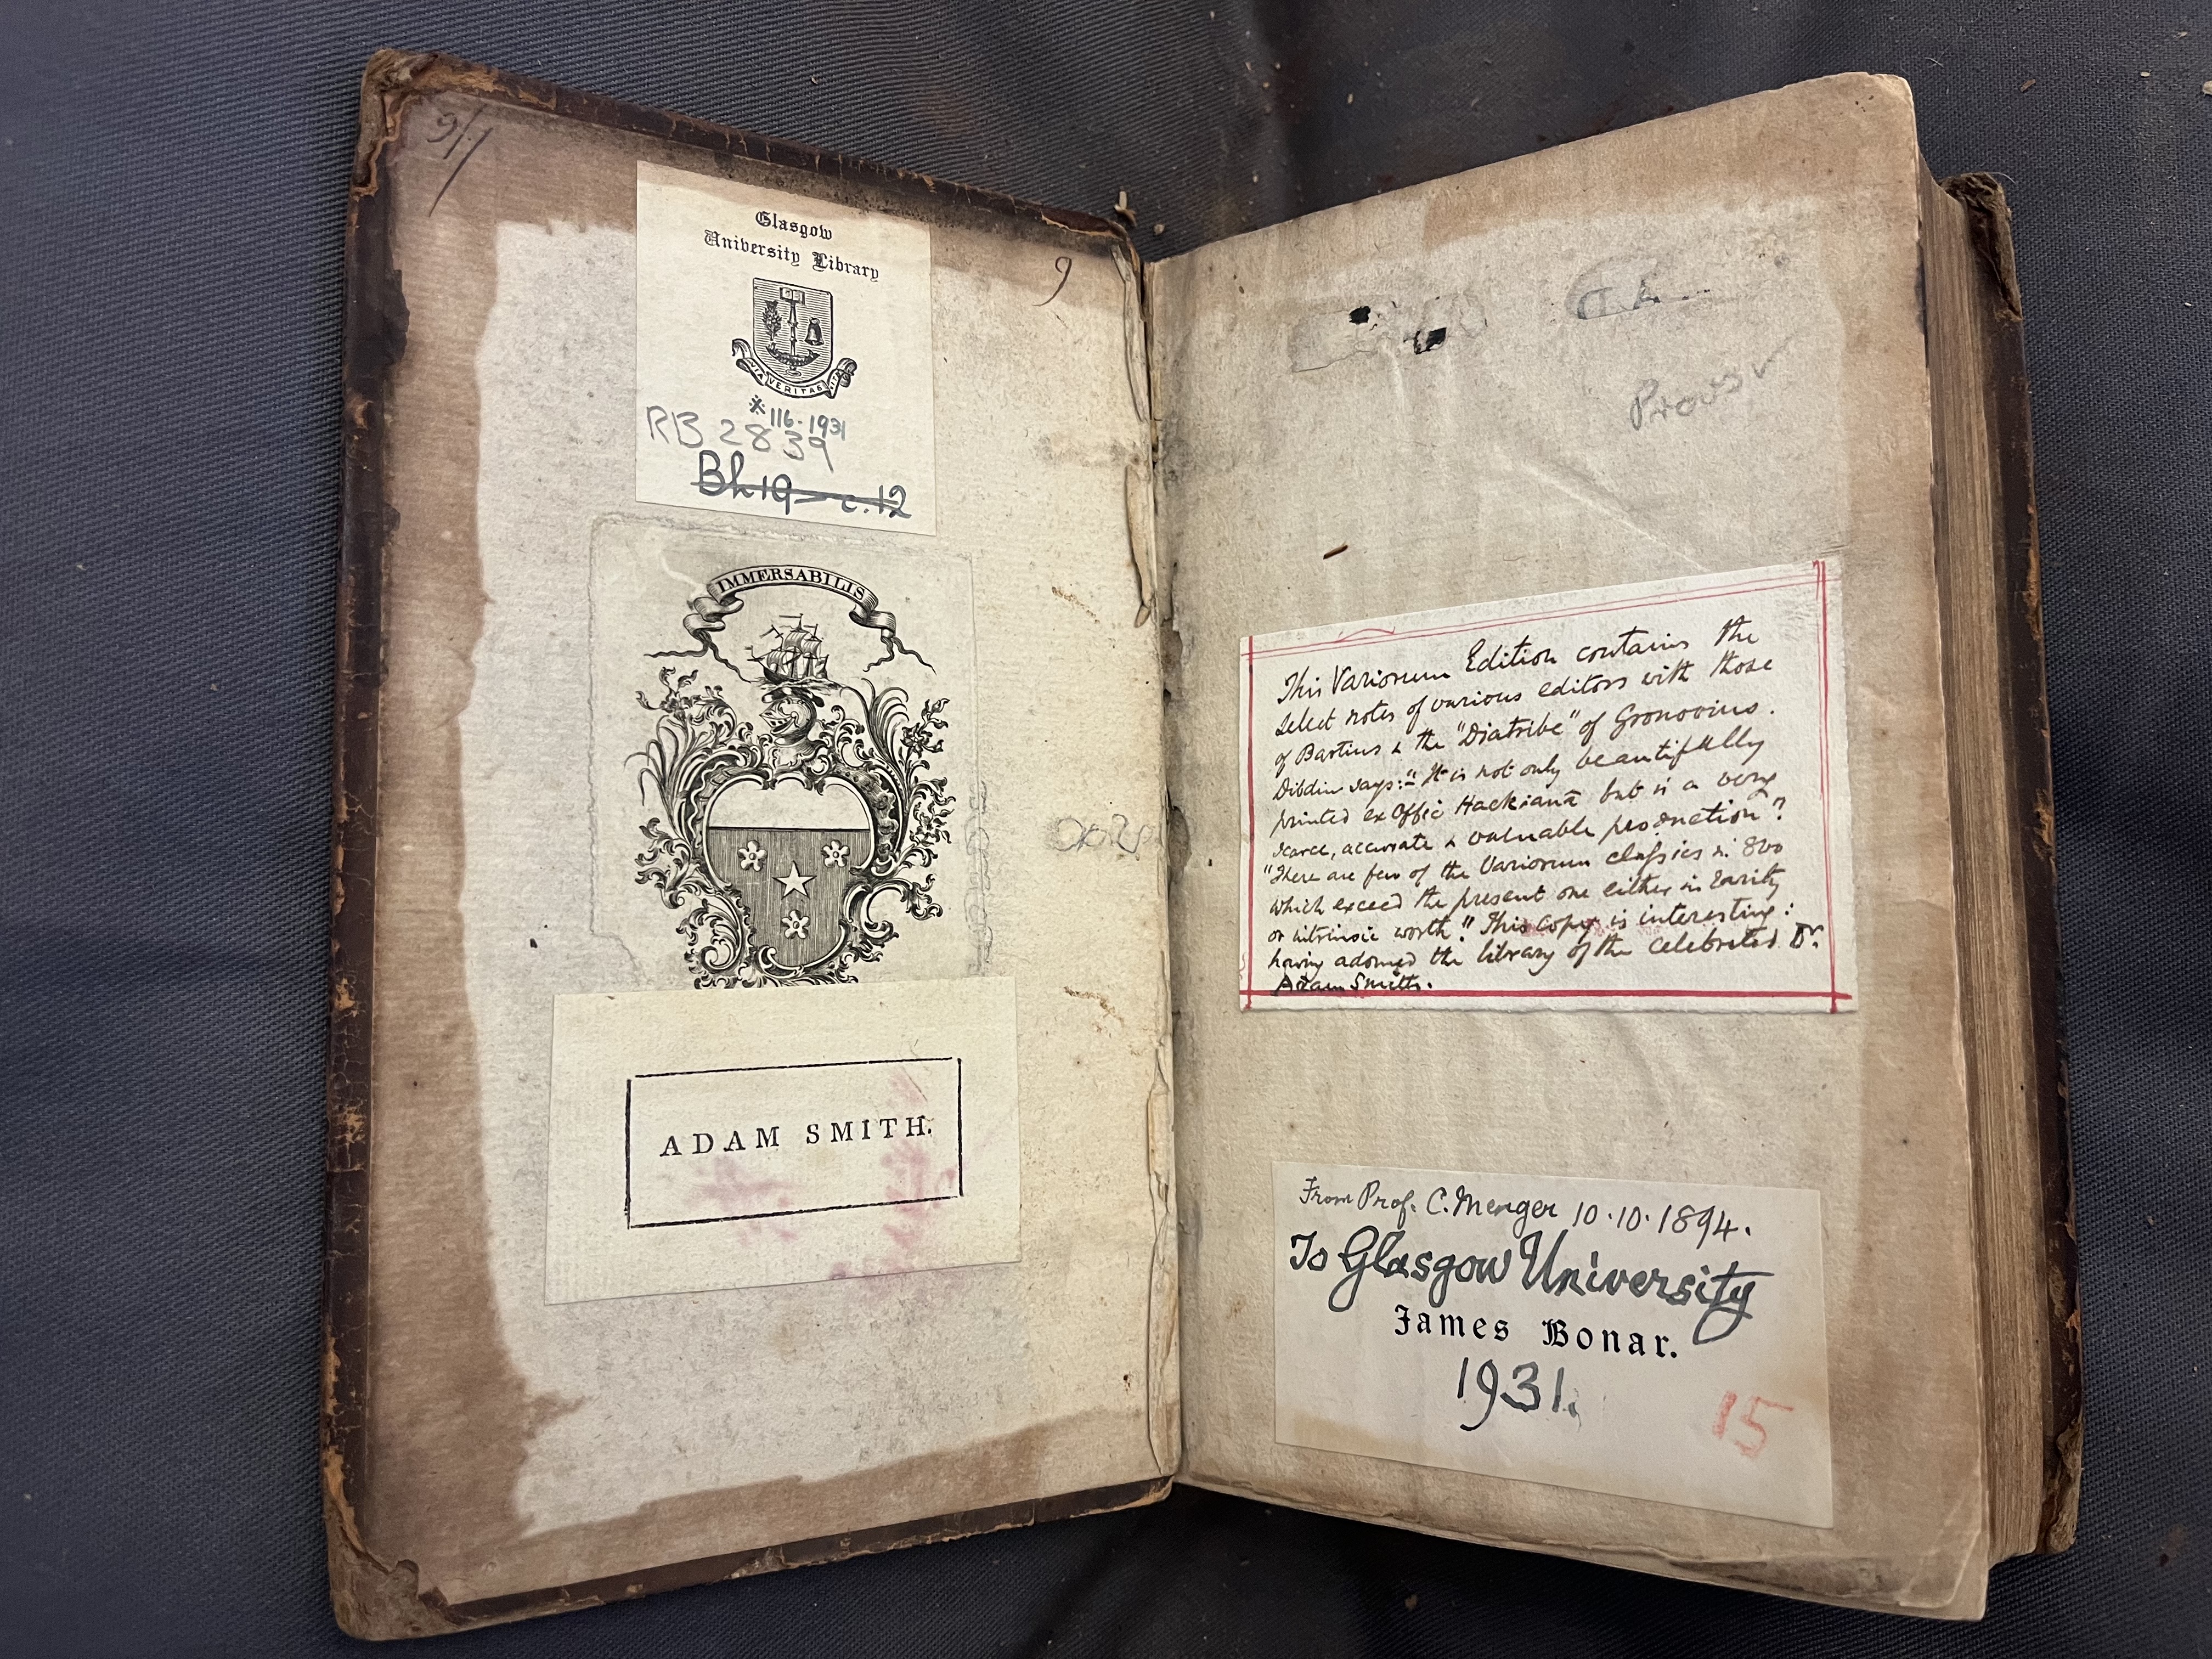 9/1
Glasgow
University Library
VIA VERITAS VITA
* 116-1931
RB 2839
Bh19-c.12
9
IMMERSABILIS
ADAM SMITH.
This Variorum Edition contains the
select notes of various editors with those
of Bartius & the "Diatribe" of Gronovius.
Dibdin says:- "It is not only beautifully
printed ex Offic Hackianâ but is a very
scarce, accurate & valuable production"?
"There are few of the Variorum classics in 8vo
which exceed the present one either in rarity
or intrinsic worth." This copy is interesting:
having adorned the library of the celebrated Dr.
Adam Smith.
From Prof. C. Menger 10.10.1894.
To Glasgow University
James Bonar.
1931.
15